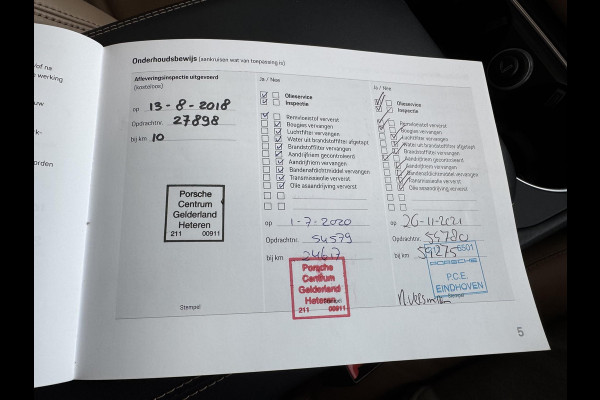 /of na
werking
uw
k-
orden
Onderhoudsbewijs (aankruisen wat van toepassing is)
Afleveringsinspectie uitgevoerd
(kosteloos)
op 13-8-2018
Opdrachtnr. 27898
bij km 10
Porsche
Centrum
Gelderland
Heteren
211 00911
Stempel
Ja / Nee
Olieservice
Inspectie
Remvloeistof ververst
Bougies vervangen
Luchtfilter vervangen
Water uit brandstoffilter afgetapt
Brandstoffilter vervangen
Aandrijfriem gecontroleerd
Aandrijfriem vervangen
Bandenafdichtmiddel vervangen
Transmissieolie ververst
Olie asaandrijving ververst
op 1-7-2020
Opdrachtnr. 54579
bij km 24617
Porsche
Centrum
Gelderland
Heteren
211 00911
Ja / Nee
Olieservice
Inspectie
Remvloeistof ververst
Bougies vervangen
Luchtfilter vervangen
Water uit brandstoffilter afgetapt
Brandstoffilter vervangen
Aandrijfriem gecontroleerd
Aandrijfriem vervangen
Bandenafdichtmiddel vervangen
Transmissieolie ververst
Olie asaandrijving ververst
op 26-11-2021
Opdrachtnr.
bij km 59275
6501
PORSCHE
P.C.E.
EINDHOVEN
Stempel
5